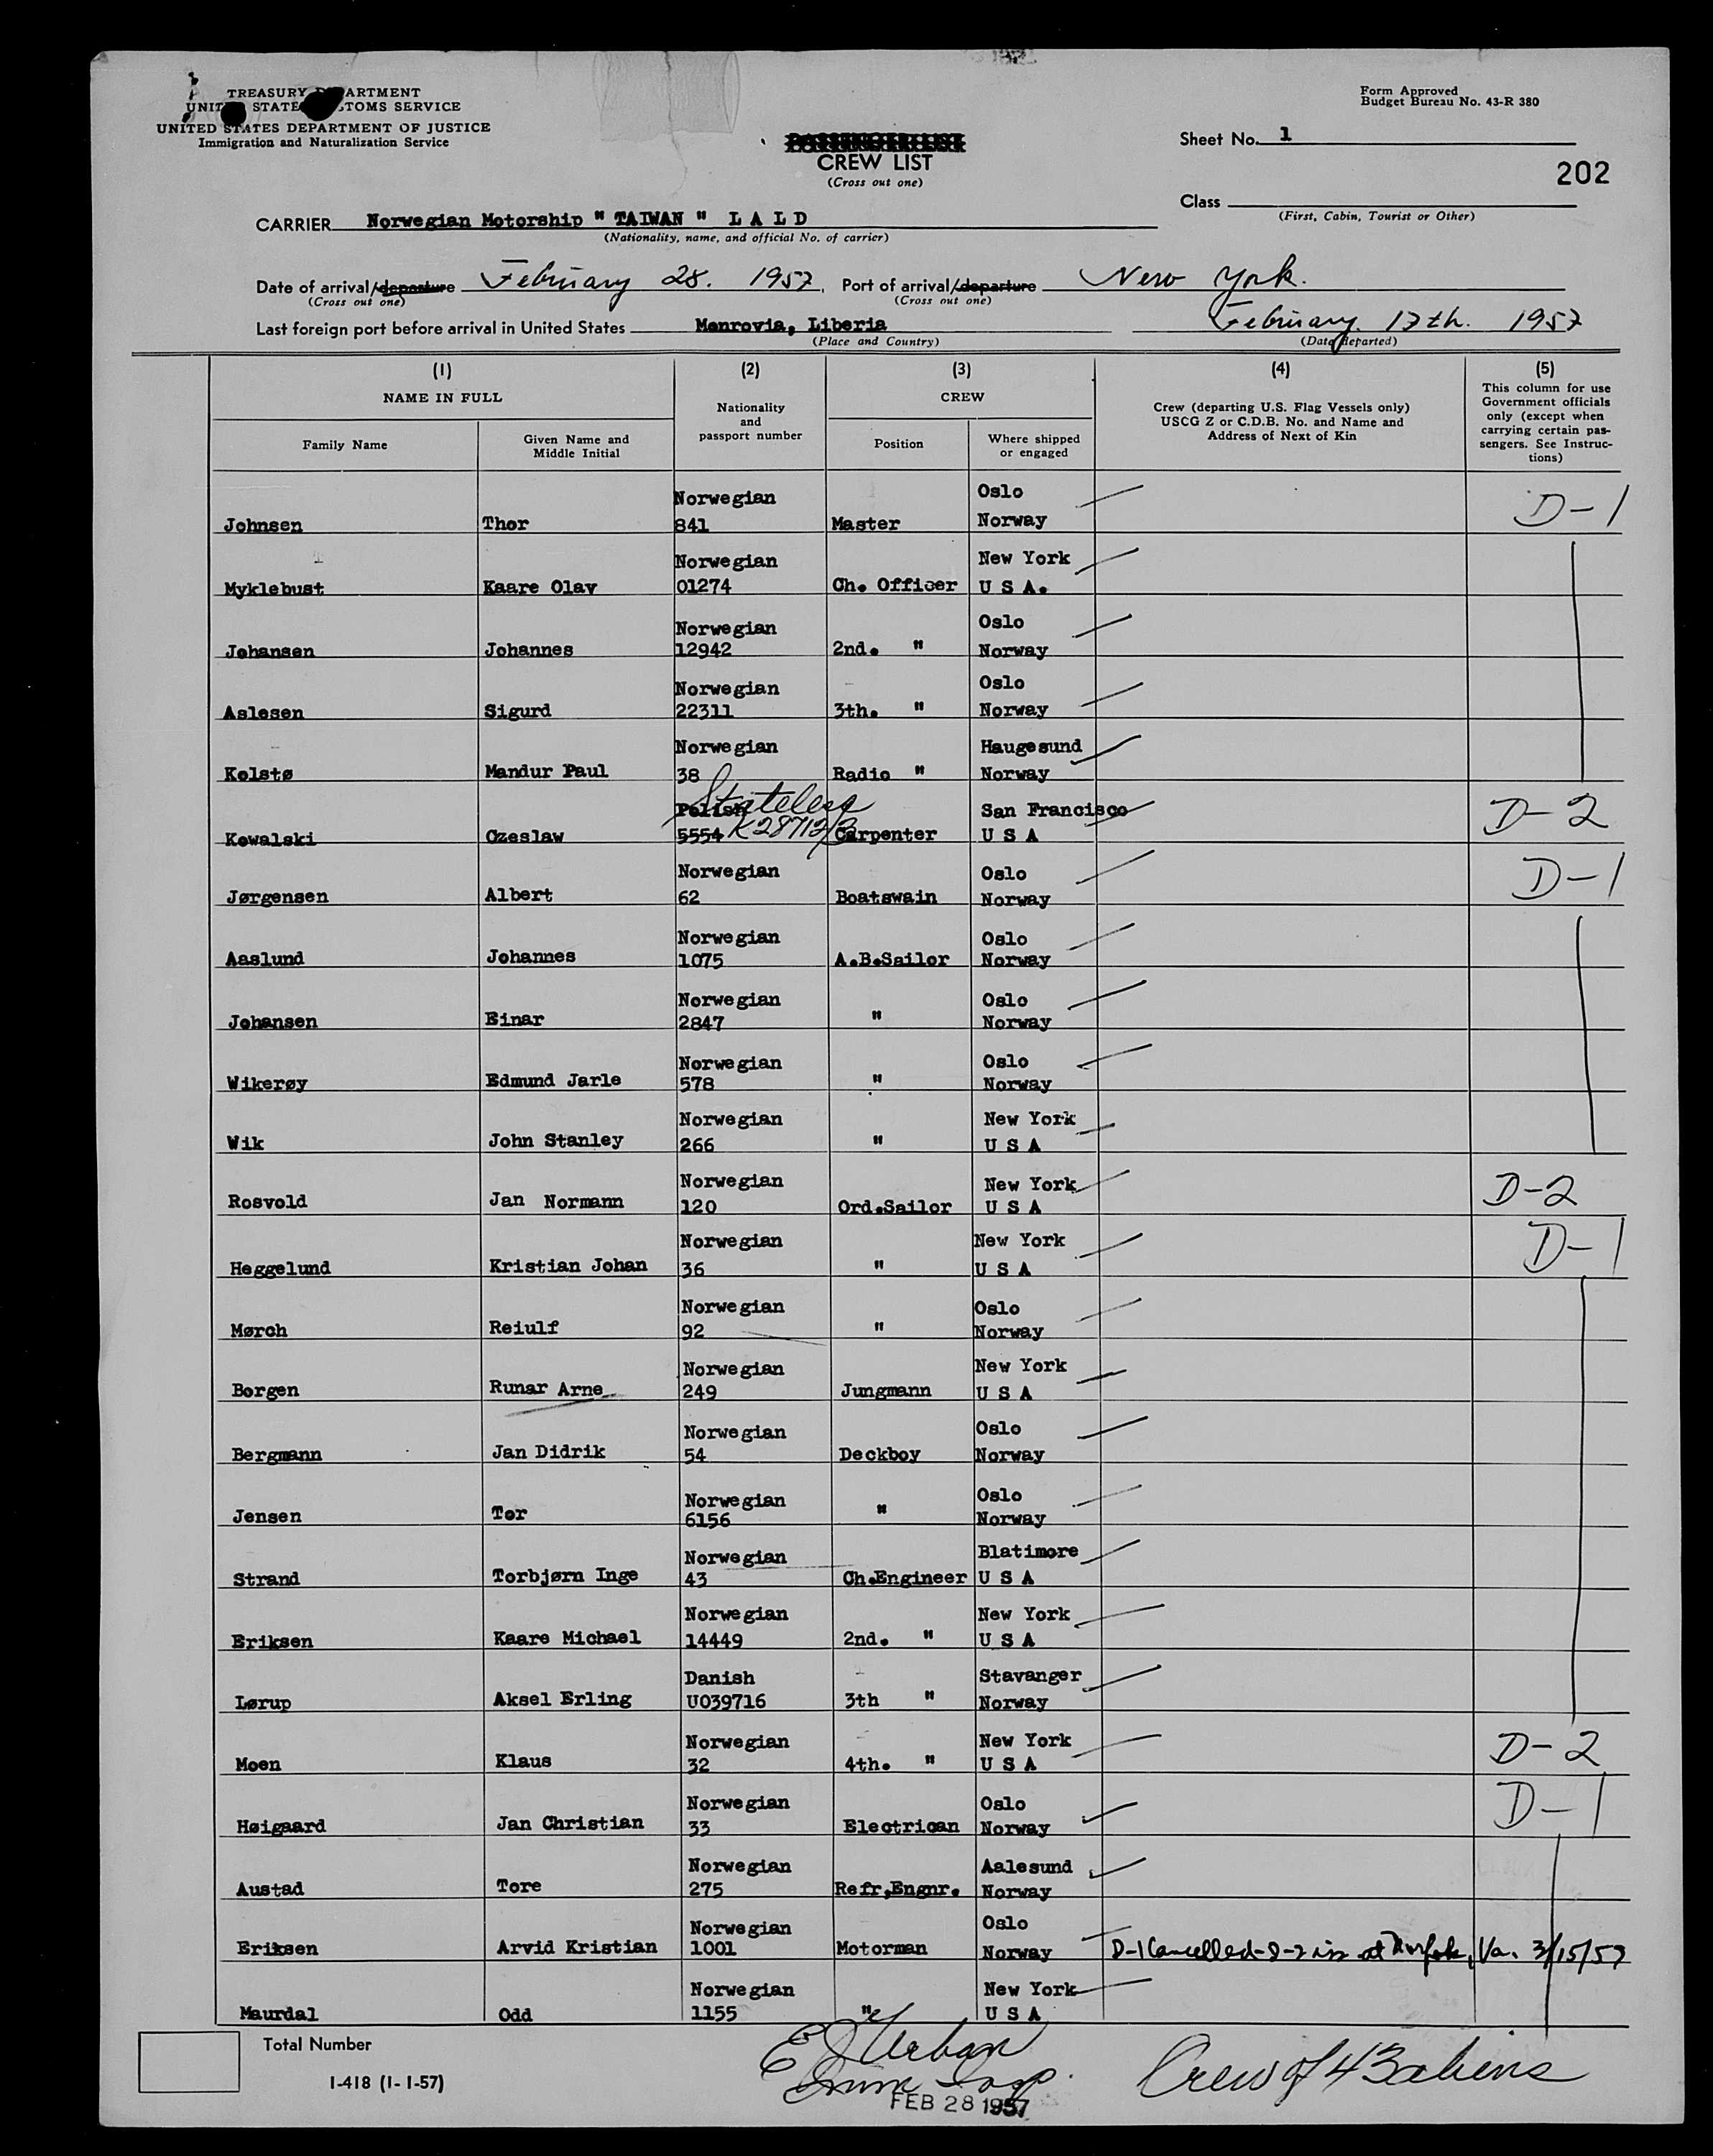 TREASURY DEPARTMENT
UNITED STATES CUSTOMS SERVICE
UNITED STATES DEPARTMENT OF JUSTICE
Immigration and Naturalization Service
Form Approved
Budget Bureau No. 43-R 380
PASSENGER LIST
CREW LIST
(Cross out one)
Sheet No. 1
202
Class
(First, Cabin, Tourist or Other)
CARRIER Norwegian Motorship " TAIWAN " L A L D
(Nationality, name, and official No. of carrier)
Date of arrival/departure February 28. 1957, Port of arrival/departure New York.
(Cross out one) (Cross out one)
Last foreign port before arrival in United States Monrovia, Liberia February 17th. 1957
(Place and Country) (Date departed)
(1) (2) (3) (4) (5)
NAME IN FULL
Nationality and passport number
CREW
Crew (departing U.S. Flag Vessels only)
USCG Z or C.D.B. No. and Name and
Address of Next of Kin
This column for use
Government officials
only (except when
carrying certain pas-
sengers. See Instruc-
tions)
Family Name Given Name and Middle Initial Position Where shipped or engaged
Norwegian Oslo
Johnsen Thor 841 Master Norway D-1
Norwegian New York
Myklebust Kaare Olav 01274 Ch. Officer U S A.
Norwegian Oslo
Johansen Johannes 12942 2nd. " Norway
Norwegian Oslo
Aslesen Sigurd 22311 3th. " Norway
Norwegian Haugesund
Kolstø Mandur Paul 38 Radio " Norway
Stateless
Polish San Francisco D-2
Kowalski Czeslaw 5554 K287123 Carpenter U S A
Norwegian Oslo
Jørgensen Albert 62 Boatswain Norway D-1
Norwegian Oslo
Aaslund Johannes 1075 A.B.Sailor Norway
Norwegian Oslo
Johansen Einar 2847 " Norway
Norwegian Oslo
Wikerøy Edmund Jarle 578 " Norway
Norwegian New York
Wik John Stanley 266 " U S A
Norwegian New York
Rosvold Jan Normann 120 Ord.Sailor U S A D-2
Norwegian New York
Heggelund Kristian Johan 36 " U S A D-1
Norwegian Oslo
Mørch Reiulf 92 " Norway
Norwegian New York
Borgen Runar Arne 249 Jungmann U S A
Norwegian Oslo
Bergmann Jan Didrik 54 Deckboy Norway
Norwegian Oslo
Jensen Tor 6156 " Norway
Norwegian Blatimore
Strand Torbjørn Inge 43 Ch.Engineer U S A
Norwegian New York
Eriksen Kaare Michael 14449 2nd. " U S A
Danish Stavanger
Lørup Aksel Erling U039716 3th " Norway
Norwegian New York
Moen Klaus 32 4th. " U S A D-2
Norwegian Oslo
Høigaard Jan Christian 33 Electrican Norway D-1
Norwegian Aalesund
Austad Tore 275 Refr,Engnr. Norway
Norwegian Oslo
Eriksen Arvid Kristian 1001 Motorman Norway D-1 Cancelled-D-2 iss at Norfolk, Va. 3/15/57
Norwegian New York
Maurdal Odd 1155 " U S A
Total Number
I-418 (1-1-57)
E J Urban
Imm Insp.
FEB 28 1957
Crew of 43 aliens